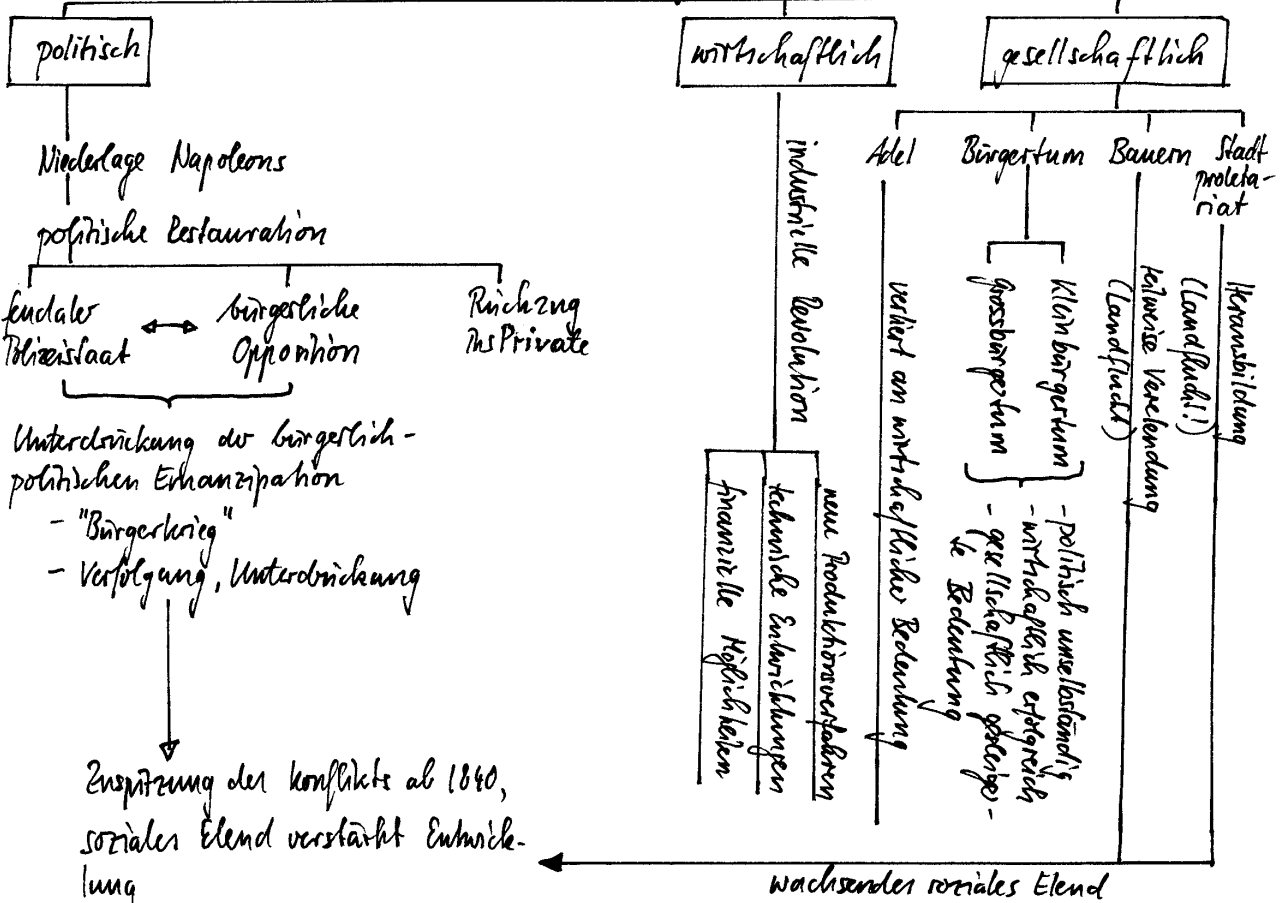 politisch
wirtschaftlich
gesellschaftlich
Niederlage Napoleons
politische Restauration
feudaler
Polizeistaat
bürgerliche
Opposition
Rückzug
ins Private
Unterdrückung der bürgerlich-
politischen Emanzipation
- "Bürgerkrieg"
- Verfolgung, Unterdrückung
Zuspitzung des Konflikts ab 1840,
soziales Elend verstärkt Entwick-
lung
industrielle Revolution
neue Produktionsverfahren
technische Entwicklungen
finanzielle Möglichkeiten
Adel
verliert an wirtschaftlicher Bedeutung
Bürgertum
Kleinbürgertum
Grossbürgertum
- politisch unselbständig
- wirtschaftlich erfolgreich
- gesellschaftlich gesteiger-
te Bedeutung
Bauern
teilweise Verelendung
(Landflucht)
Stadt
proleta-
riat
Herausbildung
(Landflucht!)
wachsendes soziales Elend